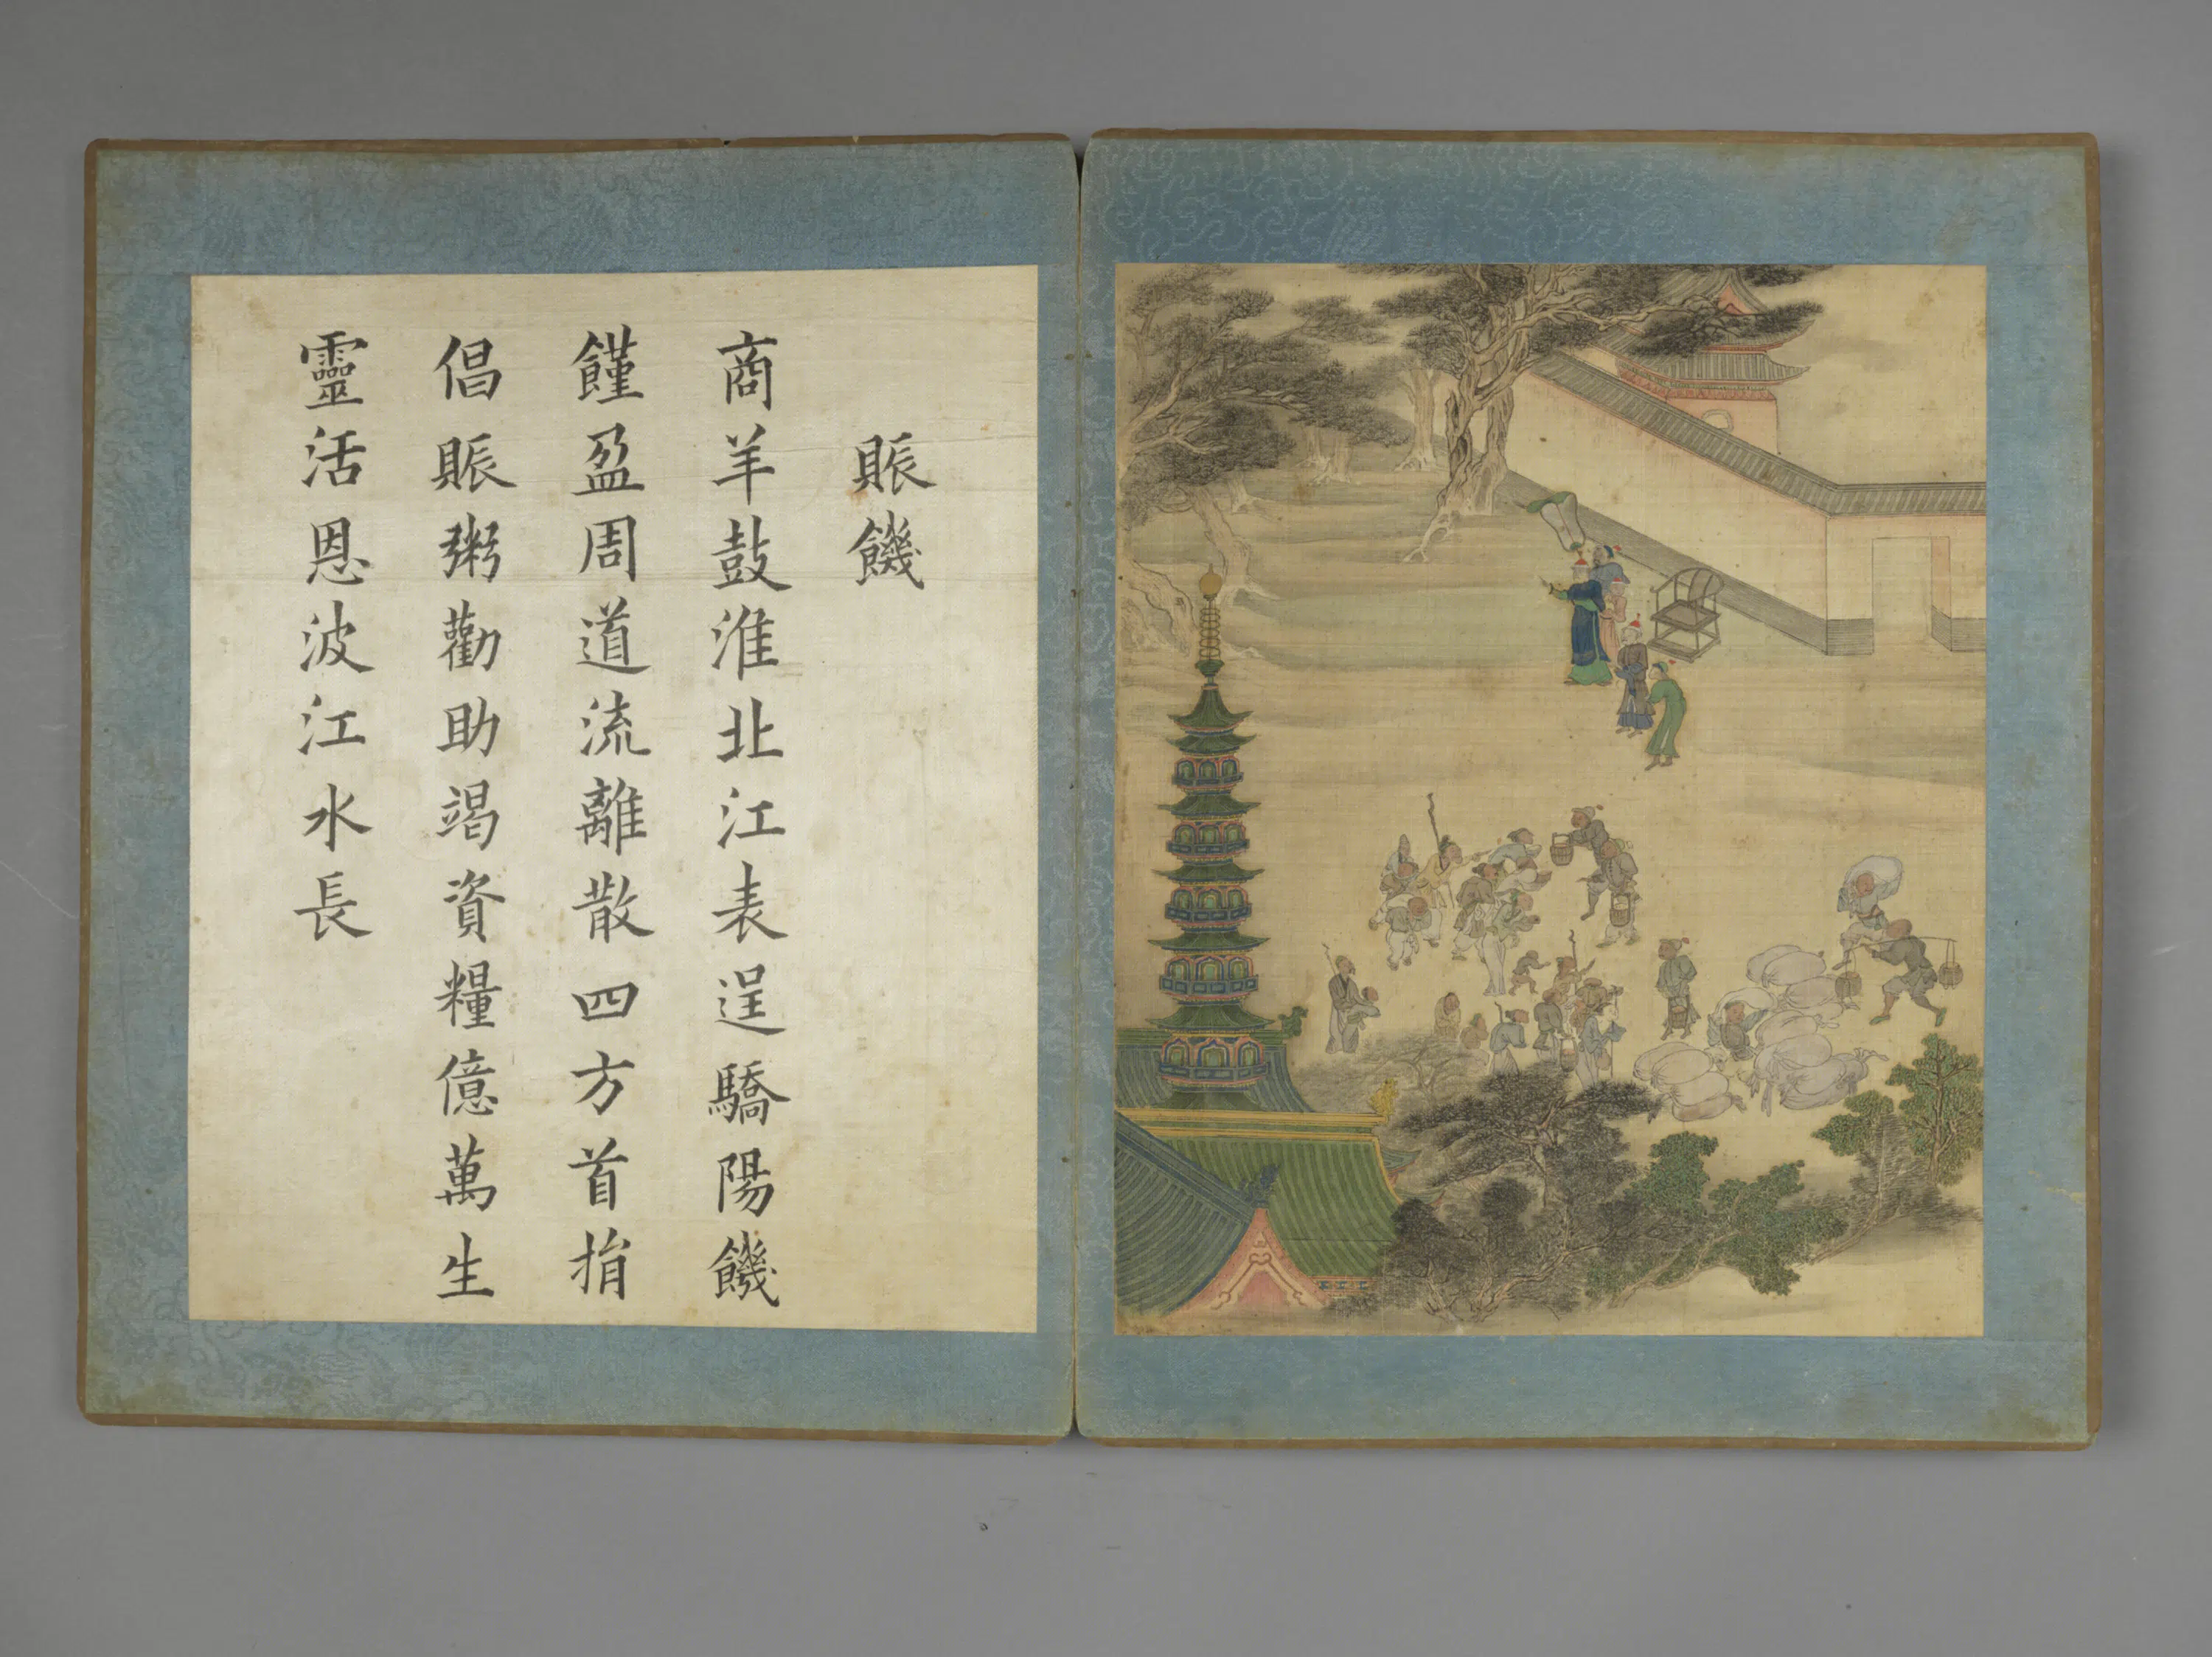 賑饑
商羊鼓淮北江表逞驕陽饑
饉盈周道流離散四方首捐
倡賑粥勸助竭資糧億萬生
靈活恩波江水長